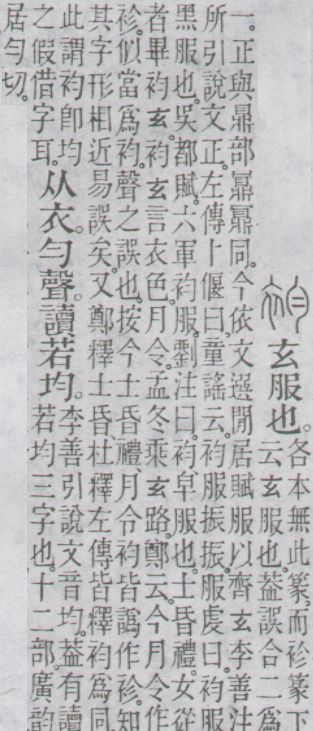 玄服也。
各本無此篆。而袗篆下
云玄服也。葢誤合二爲
一。正與鼏部鼏鼏同。今依文選閒居賦服以齊玄李善注
所引說文正。左傳卜偃曰。童謠云。袀服振振。服虔曰。袀服
黑服也。吳都賦。六軍袀服。劉注曰。袀皁服也。士昏禮。女從
者畢袀玄。袀玄言衣色。月令。孟冬乘玄路。鄭云。今月令作
袗。似當爲袀。聲之誤也。按今士昏禮月令袀皆譌作袗。知
其字形相近易誤矣。又鄭釋士昏杜釋左傳皆釋袀爲同。
此謂袀卽均
之假借字耳。
从衣。勻聲。讀若均。
李善引說文音均。葢有讀
若均三字也。十二部。廣韵
居勻切。